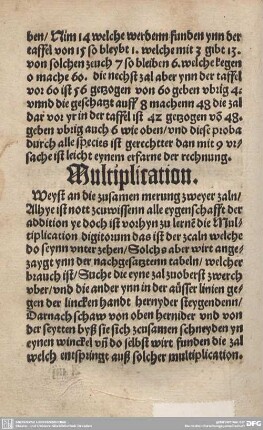 ben/ Nim 14 welche werdenn funden ynn der
taffel von 15 so bleybt 1. welche mit 3 gibt 13.
von solchen zeuch 7 so bleiben 6. welche kegen
0 mache 60. die nechst zal aber ynn der taffel
vor 60 ist 56 getzogen von 60 geben vbrig 4.
vnnd die geschatzt auff 8 machenn 48 die zal
dar vor yr in der taffel ist 42 getzogen vō 48.
geben vbrig auch 6 wie oben/ vnd diese proba
durch alle species ist gerechtter dan mit 9 vr
sache ist leicht eynem erfarne der rechnung.
Multiplication.
Weyst an die zusamen merung zweyer zaln/
Alhye ist nott zcuwissenn alle eygenschafft der
addition ye doch ist vorhyn zu lernē die Mul-
tiplication digitorum das ist der zcaln welche
do seynn vnter zehen/ Solchs aber wirt ange-
zaygt ynn der nachgesatztenn tabeln/ welcher
brauch ist/ Suche die eyne zal zuoberst zwerch
vber/ vnd die ander ynn der aüsser linien ge-
gen der lincken handt hernyder steygendenn/
Darnach schaw von oben hernider vnd von
der seytten byß sie sich zcusamen schneyden yn
eynen winckel vñ do selbst wirt funden die zal
welch entspringt auß solcher multiplication.